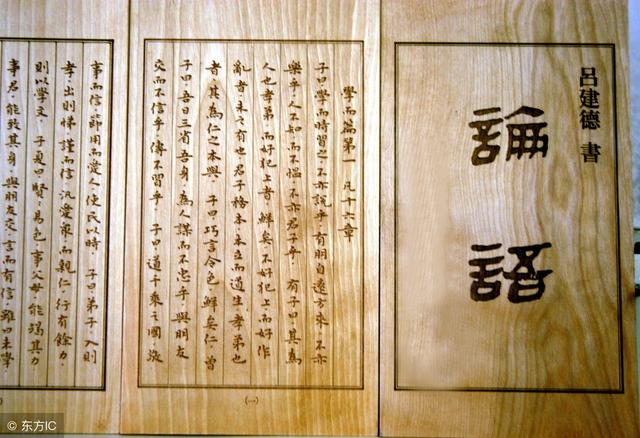 呂建德 書
論語
學而篇第一 凡十六章
子曰學而時習之不亦說乎有朋自遠方來不亦
樂乎人不知而不慍不亦君子乎 有子曰其為
人也孝弟而好犯上者鮮矣不好犯上而好作
亂者未之有也君子務本本立而道生孝弟也
者其為仁之本與 子曰巧言令色鮮矣仁 曾
子曰吾日三省吾身為人謀而不忠乎與朋友
交而不信乎傳不習乎 子曰道千乘之國敬
(一)
事而信節用而愛人使民以時 子曰弟子入則
孝出則悌謹而信汎愛眾而親仁行有餘力
則以學文 子夏曰賢〻易色事父母能竭其力
事君能致其身與朋友交言而有信雖曰未學
© 东方IC